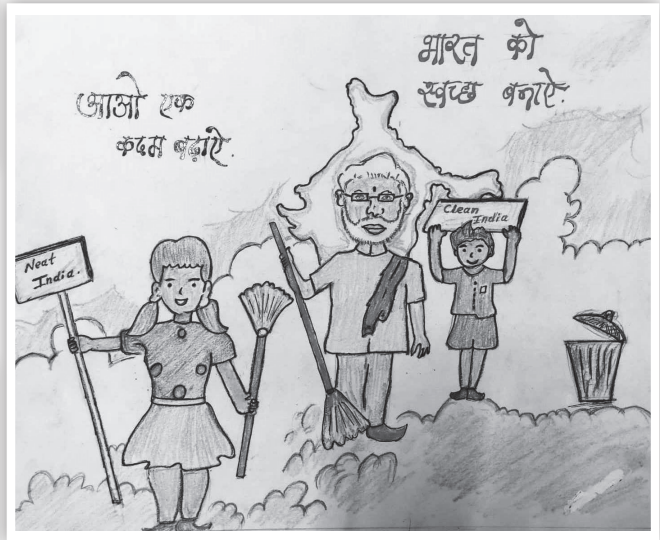 आओ एक
कदम बढ़ाऐ.
भारत को
स्वच्छ बनाऐ.
Neat
India.
Clean
India